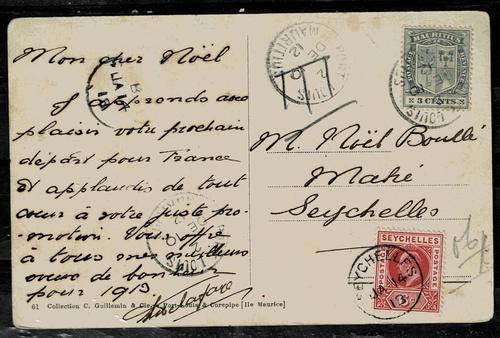 Mon cher Noël
J'apprends avec
plaisir votre prochain
départ pour France
et applaudis de tout
cœur à votre juste pro-
motion. Vous offre
à tous mes meilleurs
vœux de bonheur
pour 1913
61 Collection C. Guillemin & Cie, Port-Louis & Curepipe [Ile Maurice]
PORT LOUIS
MAURITIUS
DE
12
T
MAURITIUS
POSTAGE
3 CENTS
M. Noël Boullé
Mahé
Seychelles
SEYCHELLES
POSTAGE
SEYCHELLES
JA 14
13